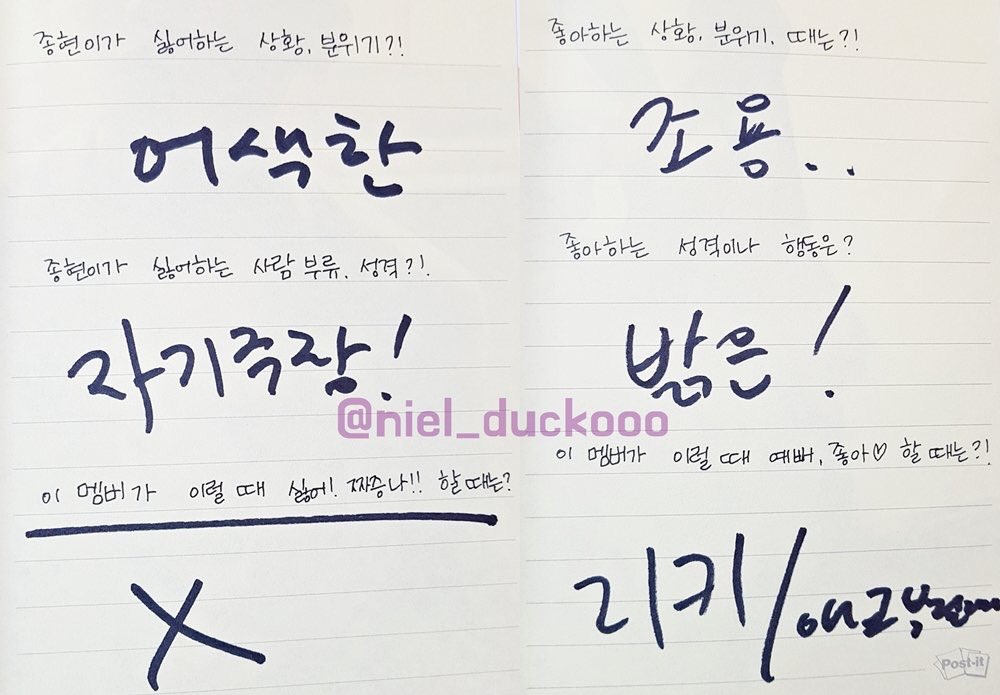 종현이가 싫어하는 상황, 분위기?!
어색한
종현이가 싫어하는 사람 부류, 성격?!
자기주장!
이 멤버가 이럴 때 싫어! 짜증나!! 할 때는?
X
좋아하는 상황, 분위기, 때는?!
조용..
좋아하는 성격이나 행동은?
밝은!
@niel_duckooo
이 멤버가 이럴 때 예뻐, 좋아♡ 할 때는?!
리키/애교
Post-it